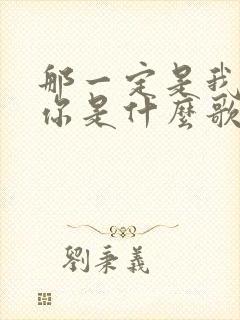 那一定是我
你是什麼歌
劉秉義